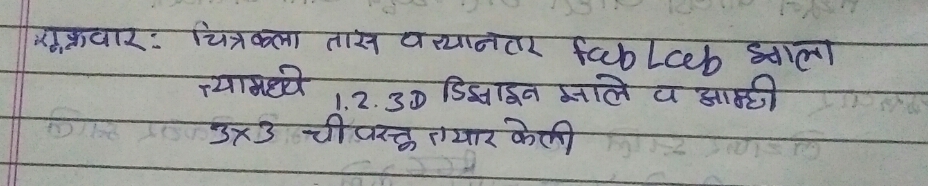 शूक्रवार: चित्रकला तास व त्यानंतर fabLab झाला
त्यामध्ये 1.2.3D डिझाइन झाले व आम्ही
3x3 ची वस्तू तयार केली